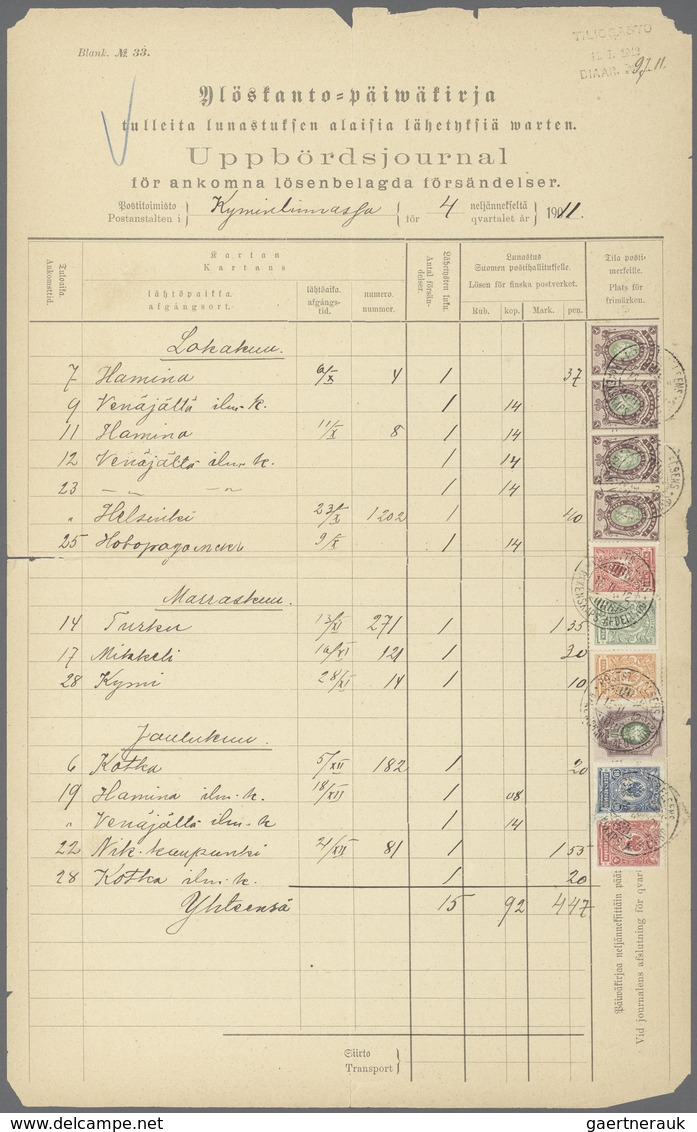 Blank. № 33.
TILIOSASTO
12. I. 1912
DIAAR.
97. 11.
Ylöskanto=päiwäkirja
tulleita lunastuksen alaisia lähetyksiä warten.
Uppbördsjournal
för ankomna lösenbelagda försändelser.
Postitoimisto Kyminlinnassa för 4 neljännekseltä 1911.
Postanstalten i qvartalet år
Tuloaika. Ankomsttid.
Kartan
Kartans
lähtöpaikka. afgångsort.
lähtöaika. afgångs-tid.
numero. nummer.
Lähetysten luku. Antal försän-delser.
Lunastus
Suomen postihallitukselle.
Lösen för finska postverket.
Rub. kop. Mark. pen.
Tila posti-merkeille.
Plats för frimärken.
Lokakuu.
7 Hamina 6/X 4 1 37
9 Venäjältä ilm. k. 1 14
11 Hamina 11/X 8 1 14
12 Venäjältä ilm. k. 1 14
23 — „ — „ 1 14
„ Helsinki 23/X 1202 1 40
25 9/X 1 14
Marraskuu.
14 Turku 13/XI 271 1 1 35
17 Mikkeli 16/XI 121 1 30
28 Kymi 28/XI 14 1 10
Joulukuu.
6 Kotka 5/XII 182 1 20
19 Hamina ilm. k. 18/XII 1 08
„ Venäjältä ilm. k 1 14
22 Nik. kaupunki 21/XII 81 1 1 55
28 Kotka ilm. k. 1 20
Yhteensä 15 92 4 47
Siirto
Transport
Päiwäkirjaa neljännekittäin päät
Vid journalens afslutning för qvart
gaertnerauk
delcampe.net